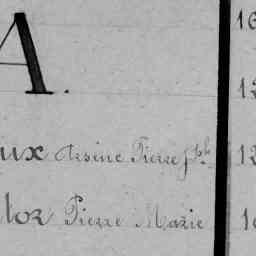 A.
ux Arsène Pierre Jph
lor Pierre Marie